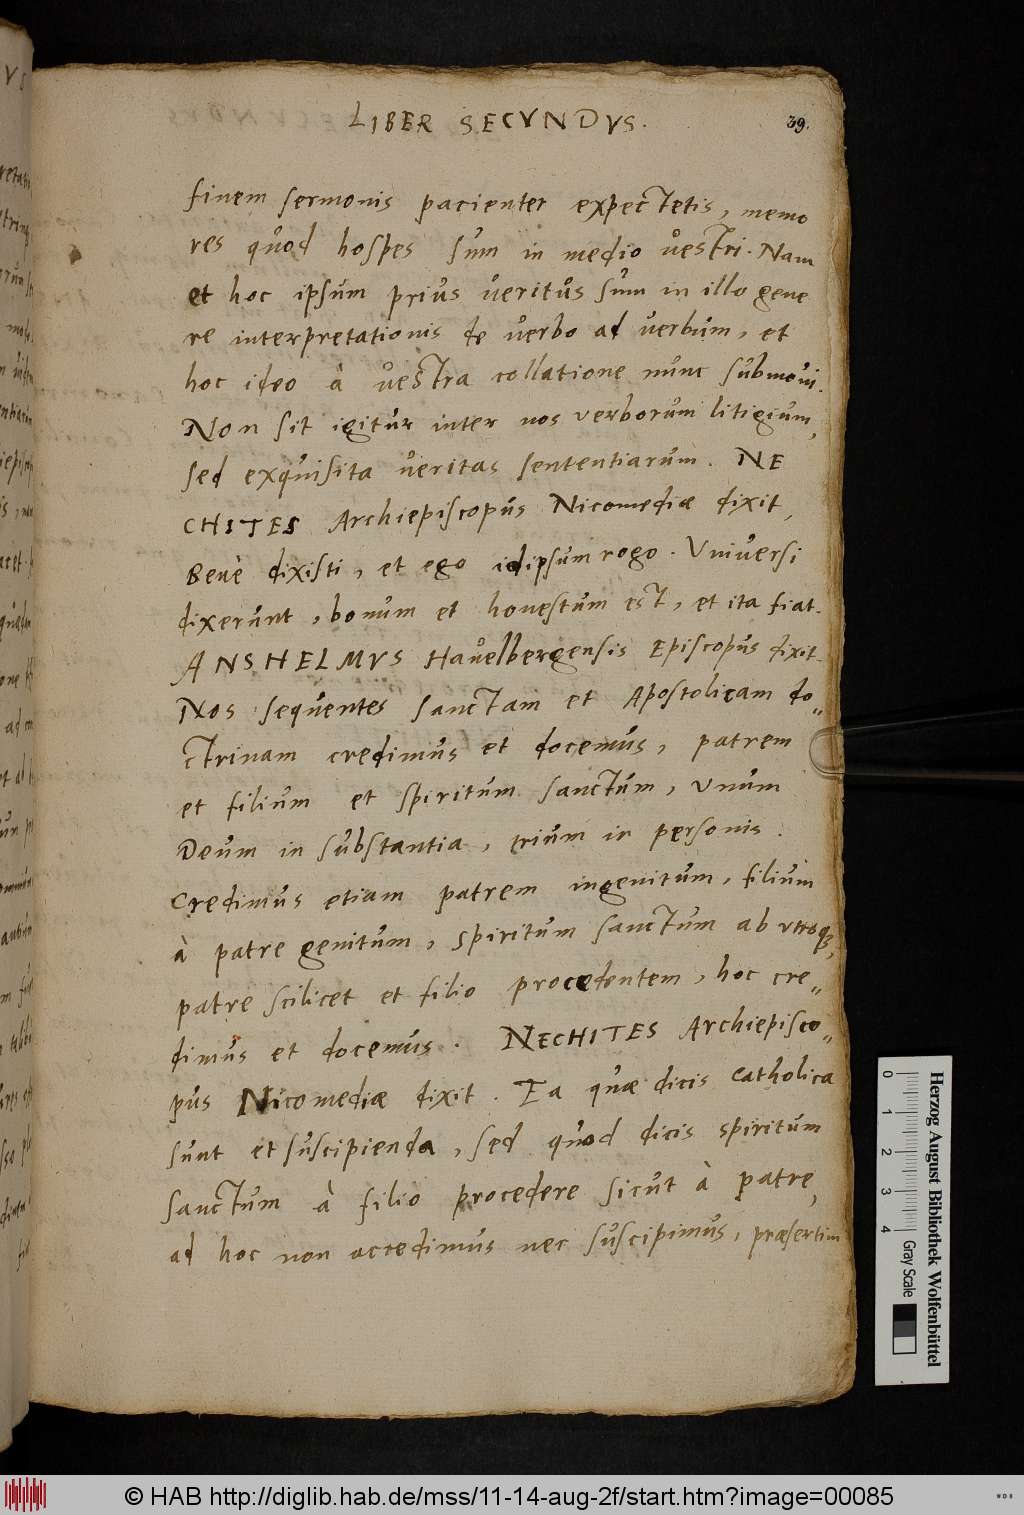 LIBER SECVNDVS.
39.
finem sermonis pacienter expectetis, memo
res quod hospes sum in medio vestri. Nam
et hoc ipsum prius veritus sum in illo gene
re interpretationis de verbo ad verbum, et
hoc ideo à vestra collatione nunc submoui.
Non sit igitur inter nos verborum litigium,
sed exquisita veritas sententiarum. NE
CHITES Archiepiscopus Nicomediæ dixit,
Benè dixisti, et ego idipsum rogo. Vniversi
dixerunt, bonum et honestum est, et ita fiat.
ANSHELMVS Havelbergensis Episcopus dixit.
Nos sequentes sanctam et Apostolicam do„
ctrinam credimus et docemus, patrem
et filium et spiritum sanctum, vnum
Deum in substantia, trium in personis.
Credimus etiam patrem ingenitum, filium
à patre genitum, spiritum sanctum ab vtroq;,
patre scilicet et filio procedentem, hoc cre„
dimus et docemus. NECHITES Archiepisco„
pus Nicomediæ dixit. Ea quæ dicis catholica
sunt et suscipienda, sed quod dicis spiritum
sanctum à filio procedere sicut à patre,
ad hoc non accedimus nec suscipimus, præsertim
Herzog August Bibliothek Wolfenbüttel
0 1 2 3 4 Gray Scale
© HAB http://diglib.hab.de/mss/11-14-aug-2f/start.htm?image=00085